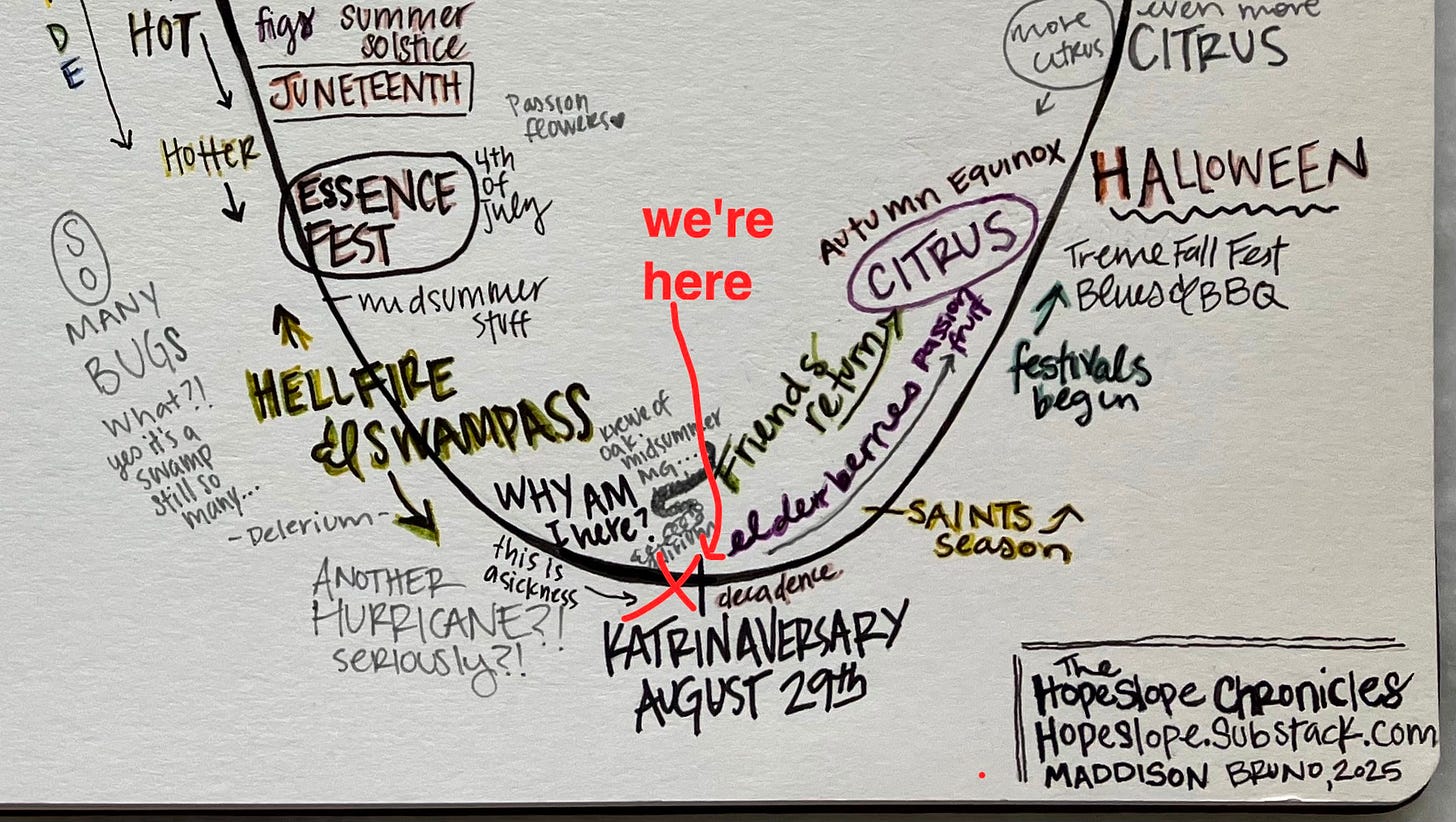 D
E
HOT
figs summer
solstice
JUNETEENTH
Passion
flowers
HOTTER
ESSENCE
FEST
4th
of
July
midsummer
stuff
SO
MANY
BUGS
what?!
yes it's a
swamp
still so
many...
HELLFIRE
& SWAMPASS
-Delerium-
ANOTHER
HURRICANE?!
seriously?!
WHY AM
I here?
this is
a sickness
krewe of
oak
midsummer
MG...
we're
here
KATRINAVERSARY
AUGUST 29th
decadence
elderberries
passion
fruit
Friends
return
CITRUS
Autumn Equinox
more
citrus
even more
CITRUS
HALLOWEEN
Treme Fall Fest
Blues & BBQ
festivals
begin
SAINTS
season
The
Hopeslope Chronicles
Hopeslope.Substack.com
MADDISON BRUNO, 2025